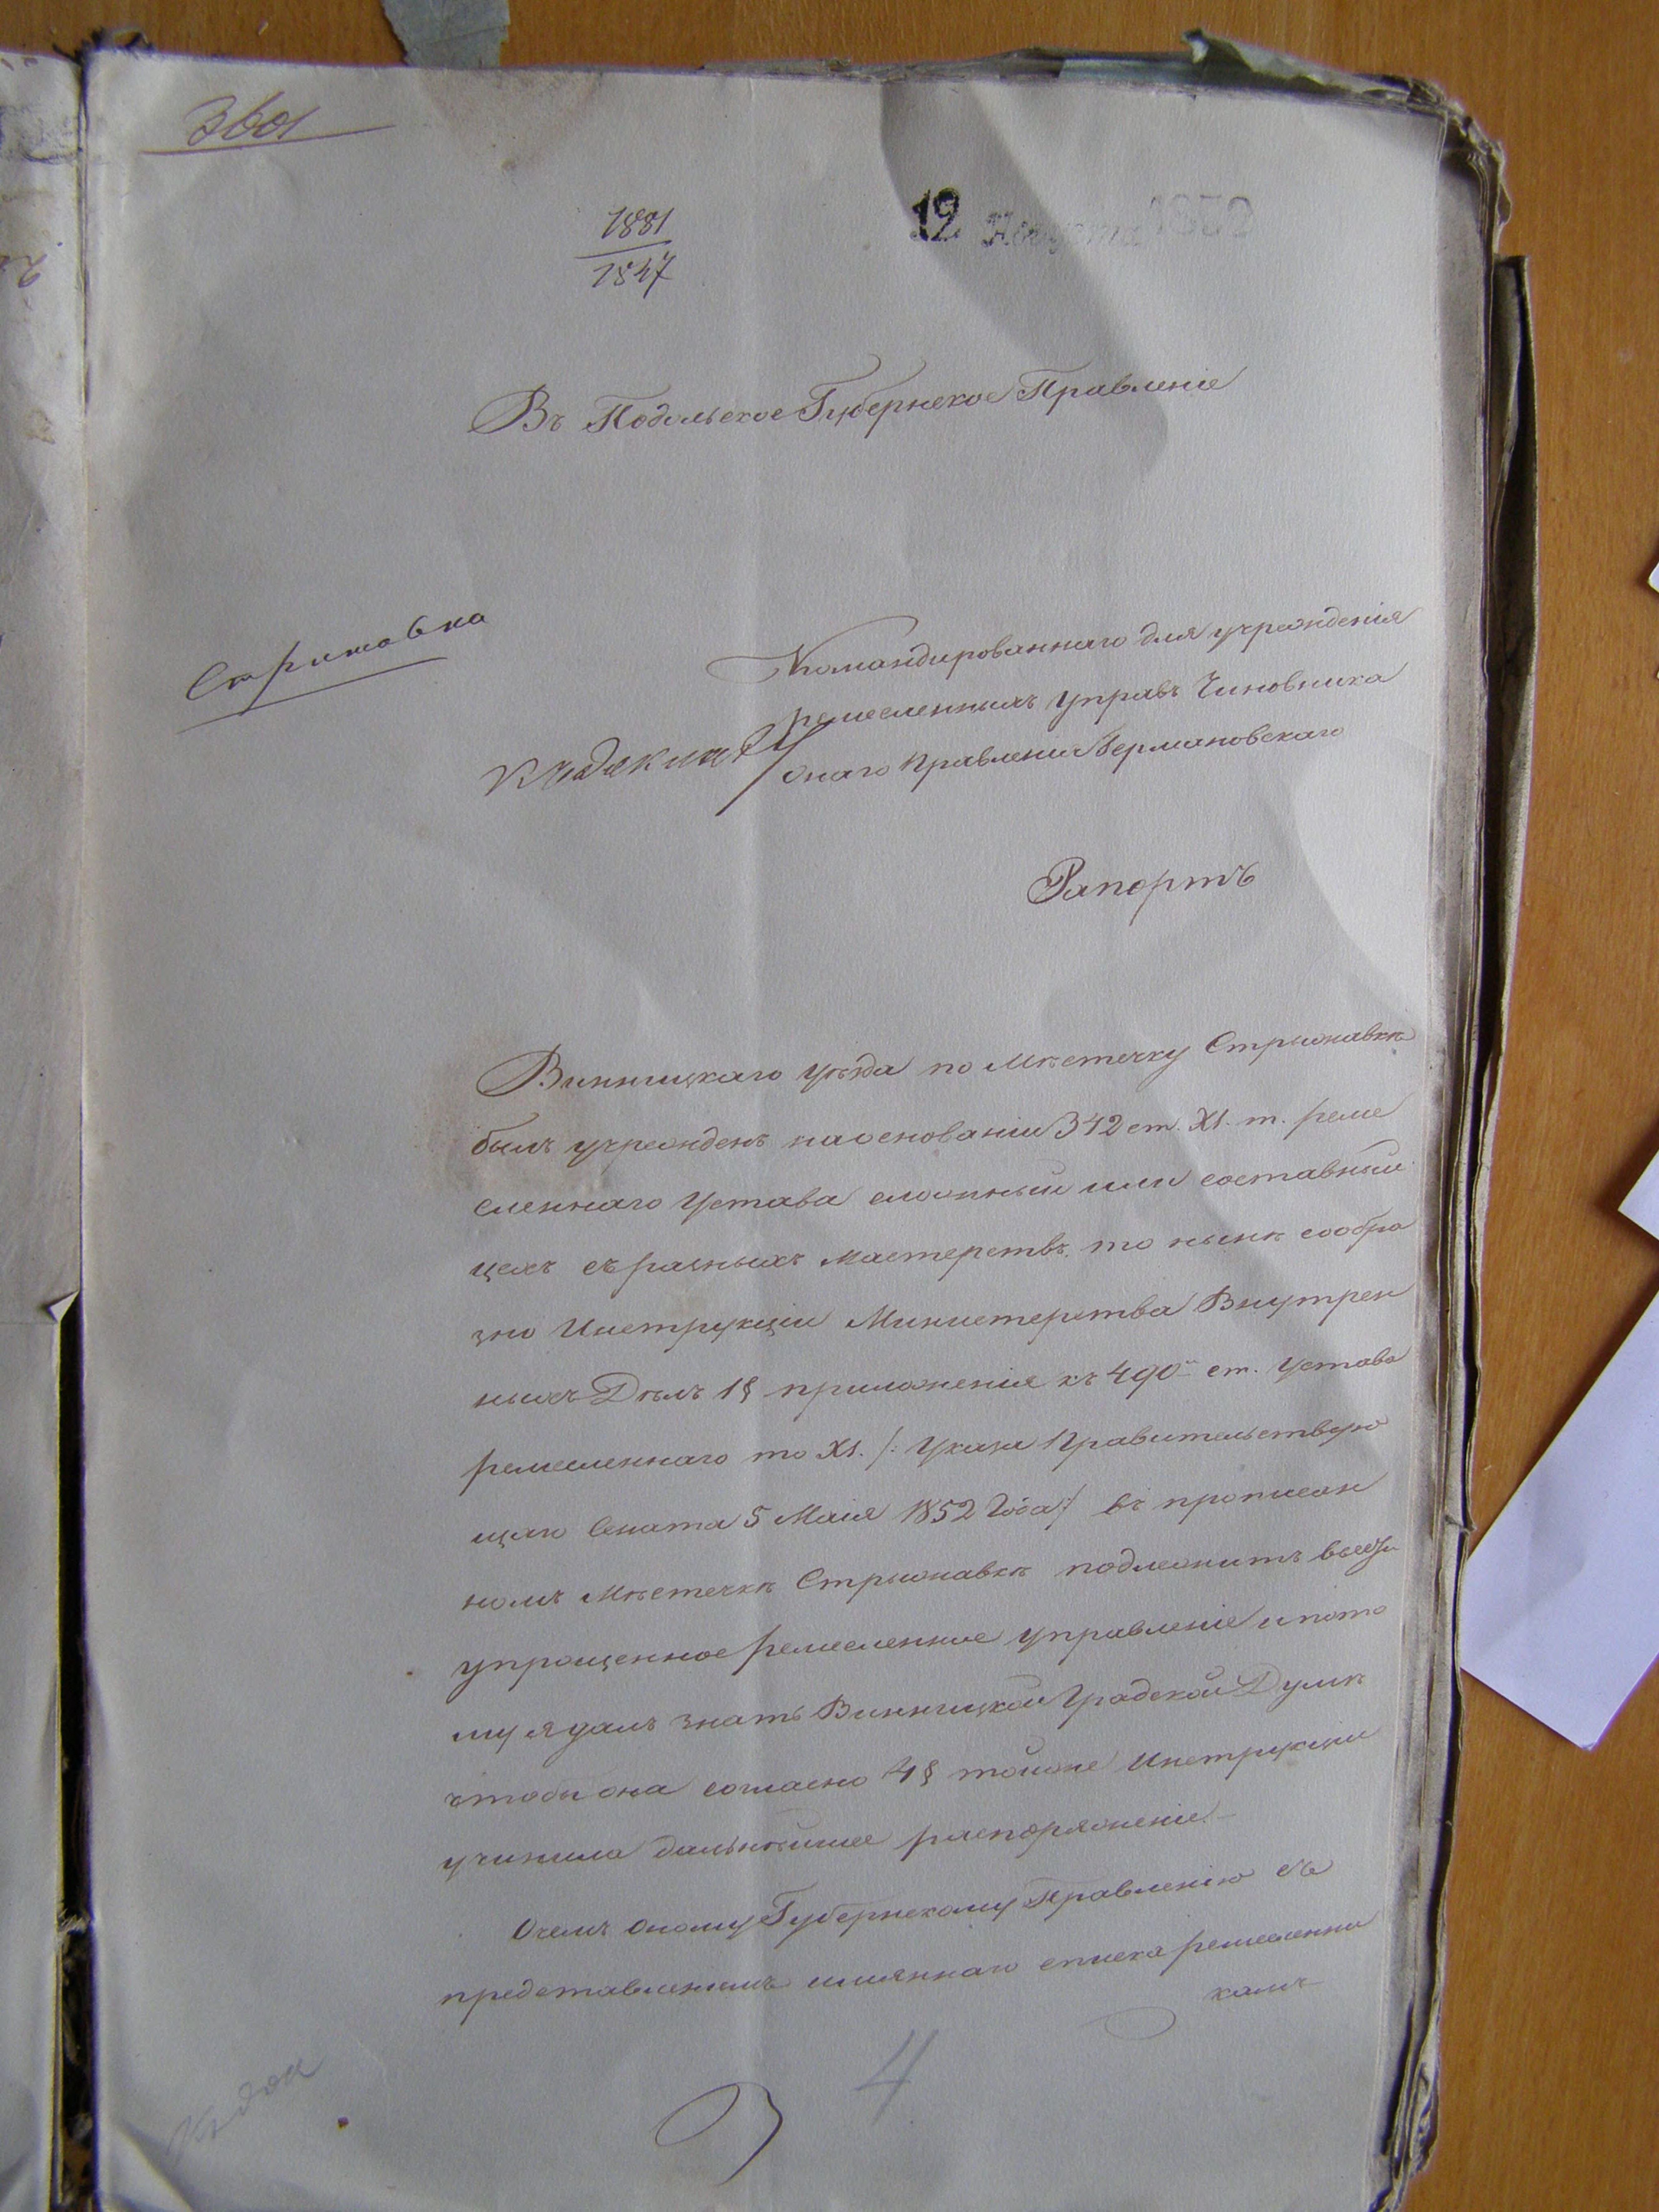 3601
1881
1547
12 Августа 185
Въ Подольское Губернское Правленіе
Стрижавка
Командированнаго для учрежденія
ремесленныхъ управъ Чиновника
онаго Правленія Германовскаго
Рапортъ
Винницкаго уѣзда по Мѣстечку Стрыжавкѣ
былъ учрежденъ на основаніи 342 ст. XI. т. реме
сленнаго Устава сложный или составный
цехъ съ разныхъ мастерствъ, то нынѣ сообра
зно Инструкціи Министерства Внутрен
ныхъ Дѣлъ 1 § приложенія къ 490й ст. Устава
ремесленнаго то XI. /: Указа Правительствую
щаго Сената 5 Маія 1852 Года :/ въ прописан
номъ Мѣстечкѣ Стрыжавкѣ подлежитъ ввести
упрощенное ремесленное управленіе и пото
му я далъ знать Винницкой Градской Думѣ
чтобы она согласно 4 § тойже Инструкціи
учинила дальнѣйшее распоряженіе.-
О чемъ оному Губернскому Правленію съ
представленіемъ имяннаго списка ремесленни
камъ
4